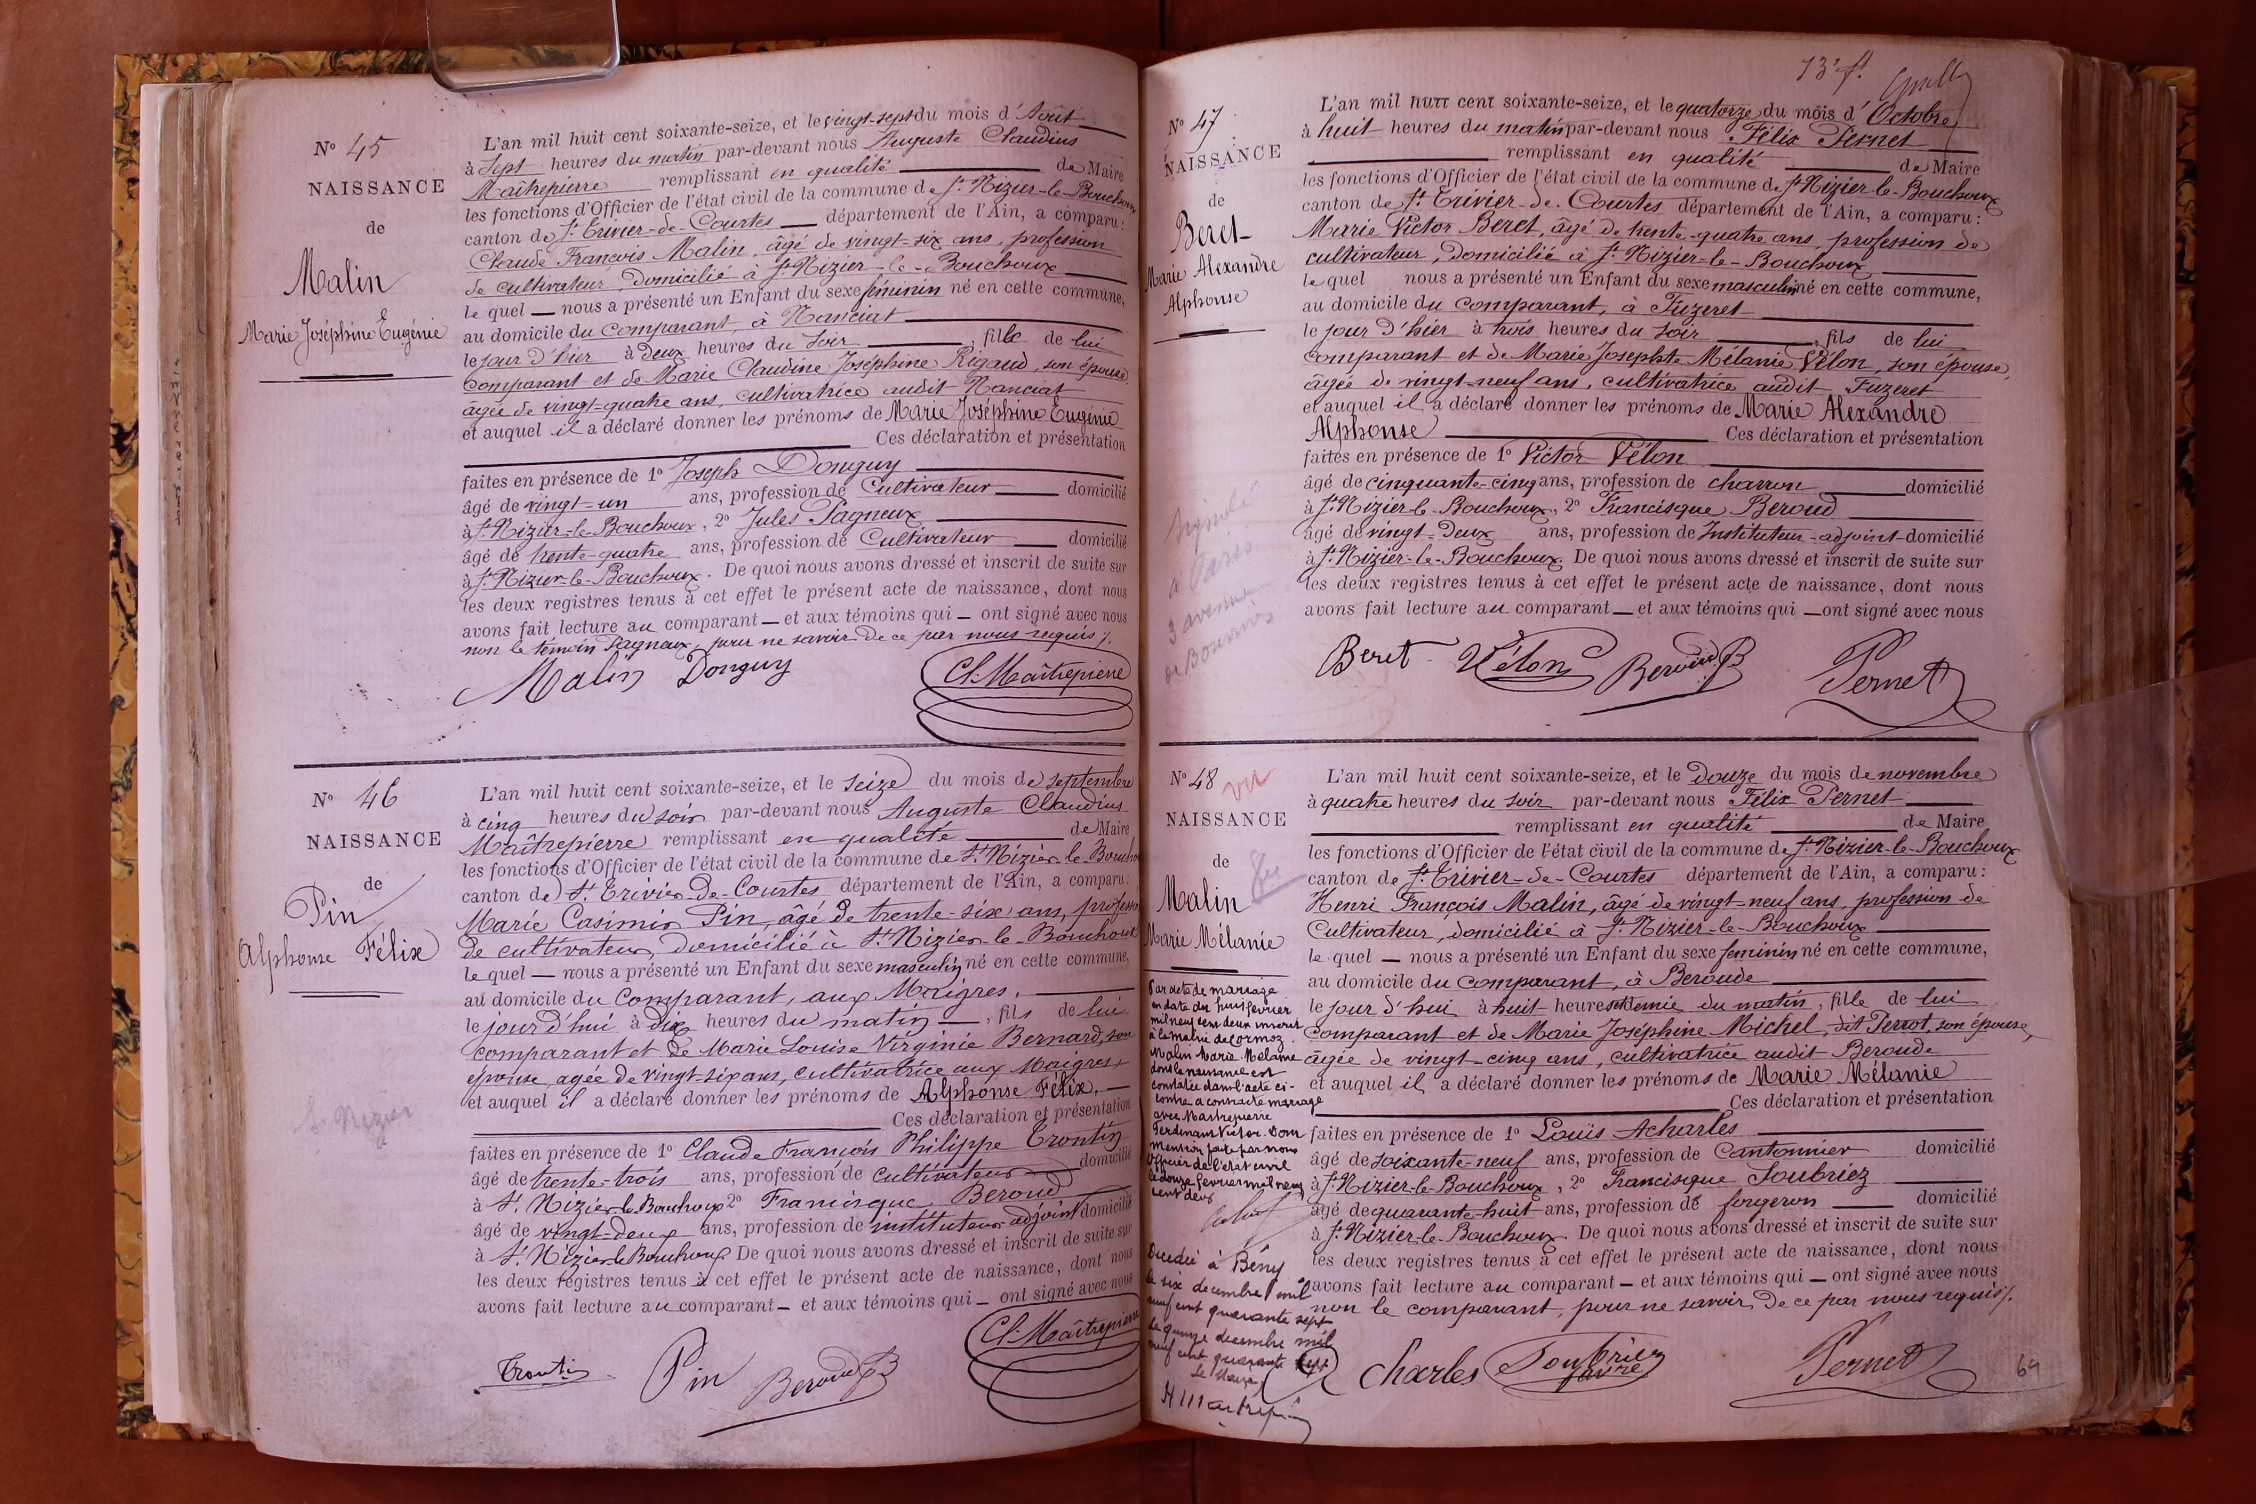 N° 45
NAISSANCE
de
Malin
Marie Joséphine Eugénie
L'an mil huit cent soixante-seize, et le vingt-sept du mois d'Août
à Sept heures du matin par-devant nous Auguste Claudius
Maîtrepierre remplissant en qualité de Maire
les fonctions d'Officier de l'état civil de la commune de St Nizier-le-Bouchoux
canton de St Trivier-de-Courtes département de l'Ain, a comparu:
Claude François Malin, âgé de vingt-six ans, profession
de cultivateur, domicilié à St Nizier-le-Bouchoux
lequel nous a présenté un Enfant du sexe féminin né en cette commune,
au domicile du comparant, à Nanciat
le jour d'hier à deux heures du soir, fille de lui
comparant et de Marie Claudine Joséphine Rigaud, son épouse,
âgée de vingt-quatre ans, cultivatrice audit Nanciat
et auquel il a déclaré donner les prénoms de Marie Joséphine Eugénie
Ces déclaration et présentation
faites en présence de 1° Joseph Donguy
âgé de vingt-un ans, profession de Cultivateur domicilié
à St Nizier-le-Bouchoux, 2° Jules Pagneux
âgé de trente-quatre ans, profession de Cultivateur domicilié
à St Nizier-le-Bouchoux. De quoi nous avons dressé et inscrit de suite sur
les deux registres tenus à cet effet le présent acte de naissance, dont nous
avons fait lecture au comparant et aux témoins qui ont signé avec nous
non le témoin Pagneux, pour ne savoir de ce par nous requis /.
Malin Donguy Cl. Maîtrepierre
N° 46
NAISSANCE
de
Pin
Alphonse Félix
St Nizier
L'an mil huit cent soixante-seize, et le seize du mois de septembre
à cinq heures du soir par-devant nous Auguste Claudius
Maîtrepierre remplissant en qualité de Maire
les fonctions d'Officier de l'état civil de la commune de St Nizier le Boucho
canton de St Trivier-de-Courtes département de l'Ain, a comparu:
Marie Casimir Pin, âgé de trente-six ans, profession
de cultivateur, domicilié à St Nizier-le-Bouchoux
lequel nous a présenté un Enfant du sexe masculin né en cette commune,
au domicile du Comparant, aux Maigres,
le jour d'hui à dix heures du matin, fils de lui
comparant et de Marie Louise Virginie Bernard, son
épouse, agée de vingt-six ans, cultivatrice aux Maigres
et auquel il a déclaré donner les prénoms de Alphonse Félix,
Ces déclaration et présentation
faites en présence de 1° Claude François Philippe Trontin
âgé de trente-trois ans, profession de cultivateur domicilié
à St Nizier le Bouchoux 2° Francisque Beroud
âgé de vingt-deux ans, profession de instituteur adjoint domicilié
à St Nizier le Bouchoux De quoi nous avons dressé et inscrit de suite sur
les deux registres tenus à cet effet le présent acte de naissance, dont nous
avons fait lecture au comparant et aux témoins qui ont signé avec nous
Trontin Pin Beroud Cl. Maîtrepierre
N° 47
NAISSANCE
de
Beret
Marie Alexandre
Alphonse
à Paris
3 avenue
L'an mil huit cent soixante-seize, et le quatorze du mois d'Octobre
à huit heures du matin par-devant nous Félix Pernet
remplissant en qualité de Maire
les fonctions d'Officier de l'état civil de la commune de St Nizier-le-Bouchoux
canton de St Trivier-de-Courtes département de l'Ain, a comparu:
Marie Victor Beret, âgé de trente-quatre ans, profession de
cultivateur, domicilié à St Nizier-le-Bouchoux
lequel nous a présenté un Enfant du sexe masculin né en cette commune,
au domicile du comparant, à Fuzeret
le jour d'hier à trois heures du soir, fils de lui
comparant et de Marie Josephte Mélanie Vélon, son épouse,
âgée de vingt-neuf ans, cultivatrice audit Fuzeret
et auquel il a déclaré donner les prénoms de Marie Alexandre
Alphonse Ces déclaration et présentation
faites en présence de 1° Victor Vélon
âgé de cinquante-cinq ans, profession de charron domicilié
à St Nizier-le-Bouchoux, 2° Francisque Beroud
âgé de vingt-deux ans, profession de Instituteur-adjoint domicilié
à St Nizier-le-Bouchoux. De quoi nous avons dressé et inscrit de suite sur
les deux registres tenus à cet effet le présent acte de naissance, dont nous
avons fait lecture au comparant et aux témoins qui ont signé avec nous
Beret Vélon Beroud Pernet
N° 48
vu
NAISSANCE
de
Malin
Marie Mélanie
Par acte de mariage
en date du huit février
mil neuf cent deux inscrit
à la mairie de Cormoz
Malin Marie Mélanie
dont la naissance est
constatée dans l'acte ci-
contre a contracté mariage
avec Maitrepierre
Ferdinand Victor. Dont
mention faite par nous
officier de l'état civil
le douze février mil neuf
cent deux
Décédée à Bény
le six décembre mil
neuf cent quarante sept
Le quinze decembre mil
neuf cent quarante sept
Le Maire
L'an mil huit cent soixante-seize, et le Douze du mois de novembre
à quatre heures du soir par-devant nous Félix Pernet
remplissant en qualité de Maire
les fonctions d'Officier de l'état civil de la commune de St Nizier-le-Bouchoux
canton de St Trivier-de-Courtes département de l'Ain, a comparu:
Henri François Malin, âgé de vingt-neuf ans, profession de
Cultivateur, domicilié à St Nizier-le-Bouchoux
lequel nous a présenté un Enfant du sexe feminin né en cette commune,
au domicile du comparant, à Beroude
le jour d'hui à huit heures et demie du matin, fille de lui
comparant et de Marie Joséphine Michel, dit Perrot, son épouse,
âgée de vingt-cinq ans, cultivatrice audit Beroude
et auquel il a déclaré donner les prénoms de Marie Mélanie
Ces déclaration et présentation
faites en présence de 1° Louis Acharles
âgé de soixante-neuf ans, profession de Cantonnier domicilié
à St Nizier-le-Bouchoux, 2° Francisque Soubriez
âgé de quarante-huit ans, profession de forgeron domicilié
à St Nizier-le-Bouchoux. De quoi nous avons dressé et inscrit de suite sur
les deux registres tenus à cet effet le présent acte de naissance, dont nous
avons fait lecture au comparant et aux témoins qui ont signé avec nous
non le comparant, pour ne savoir de ce par nous requis /.
Charles Pernet
64